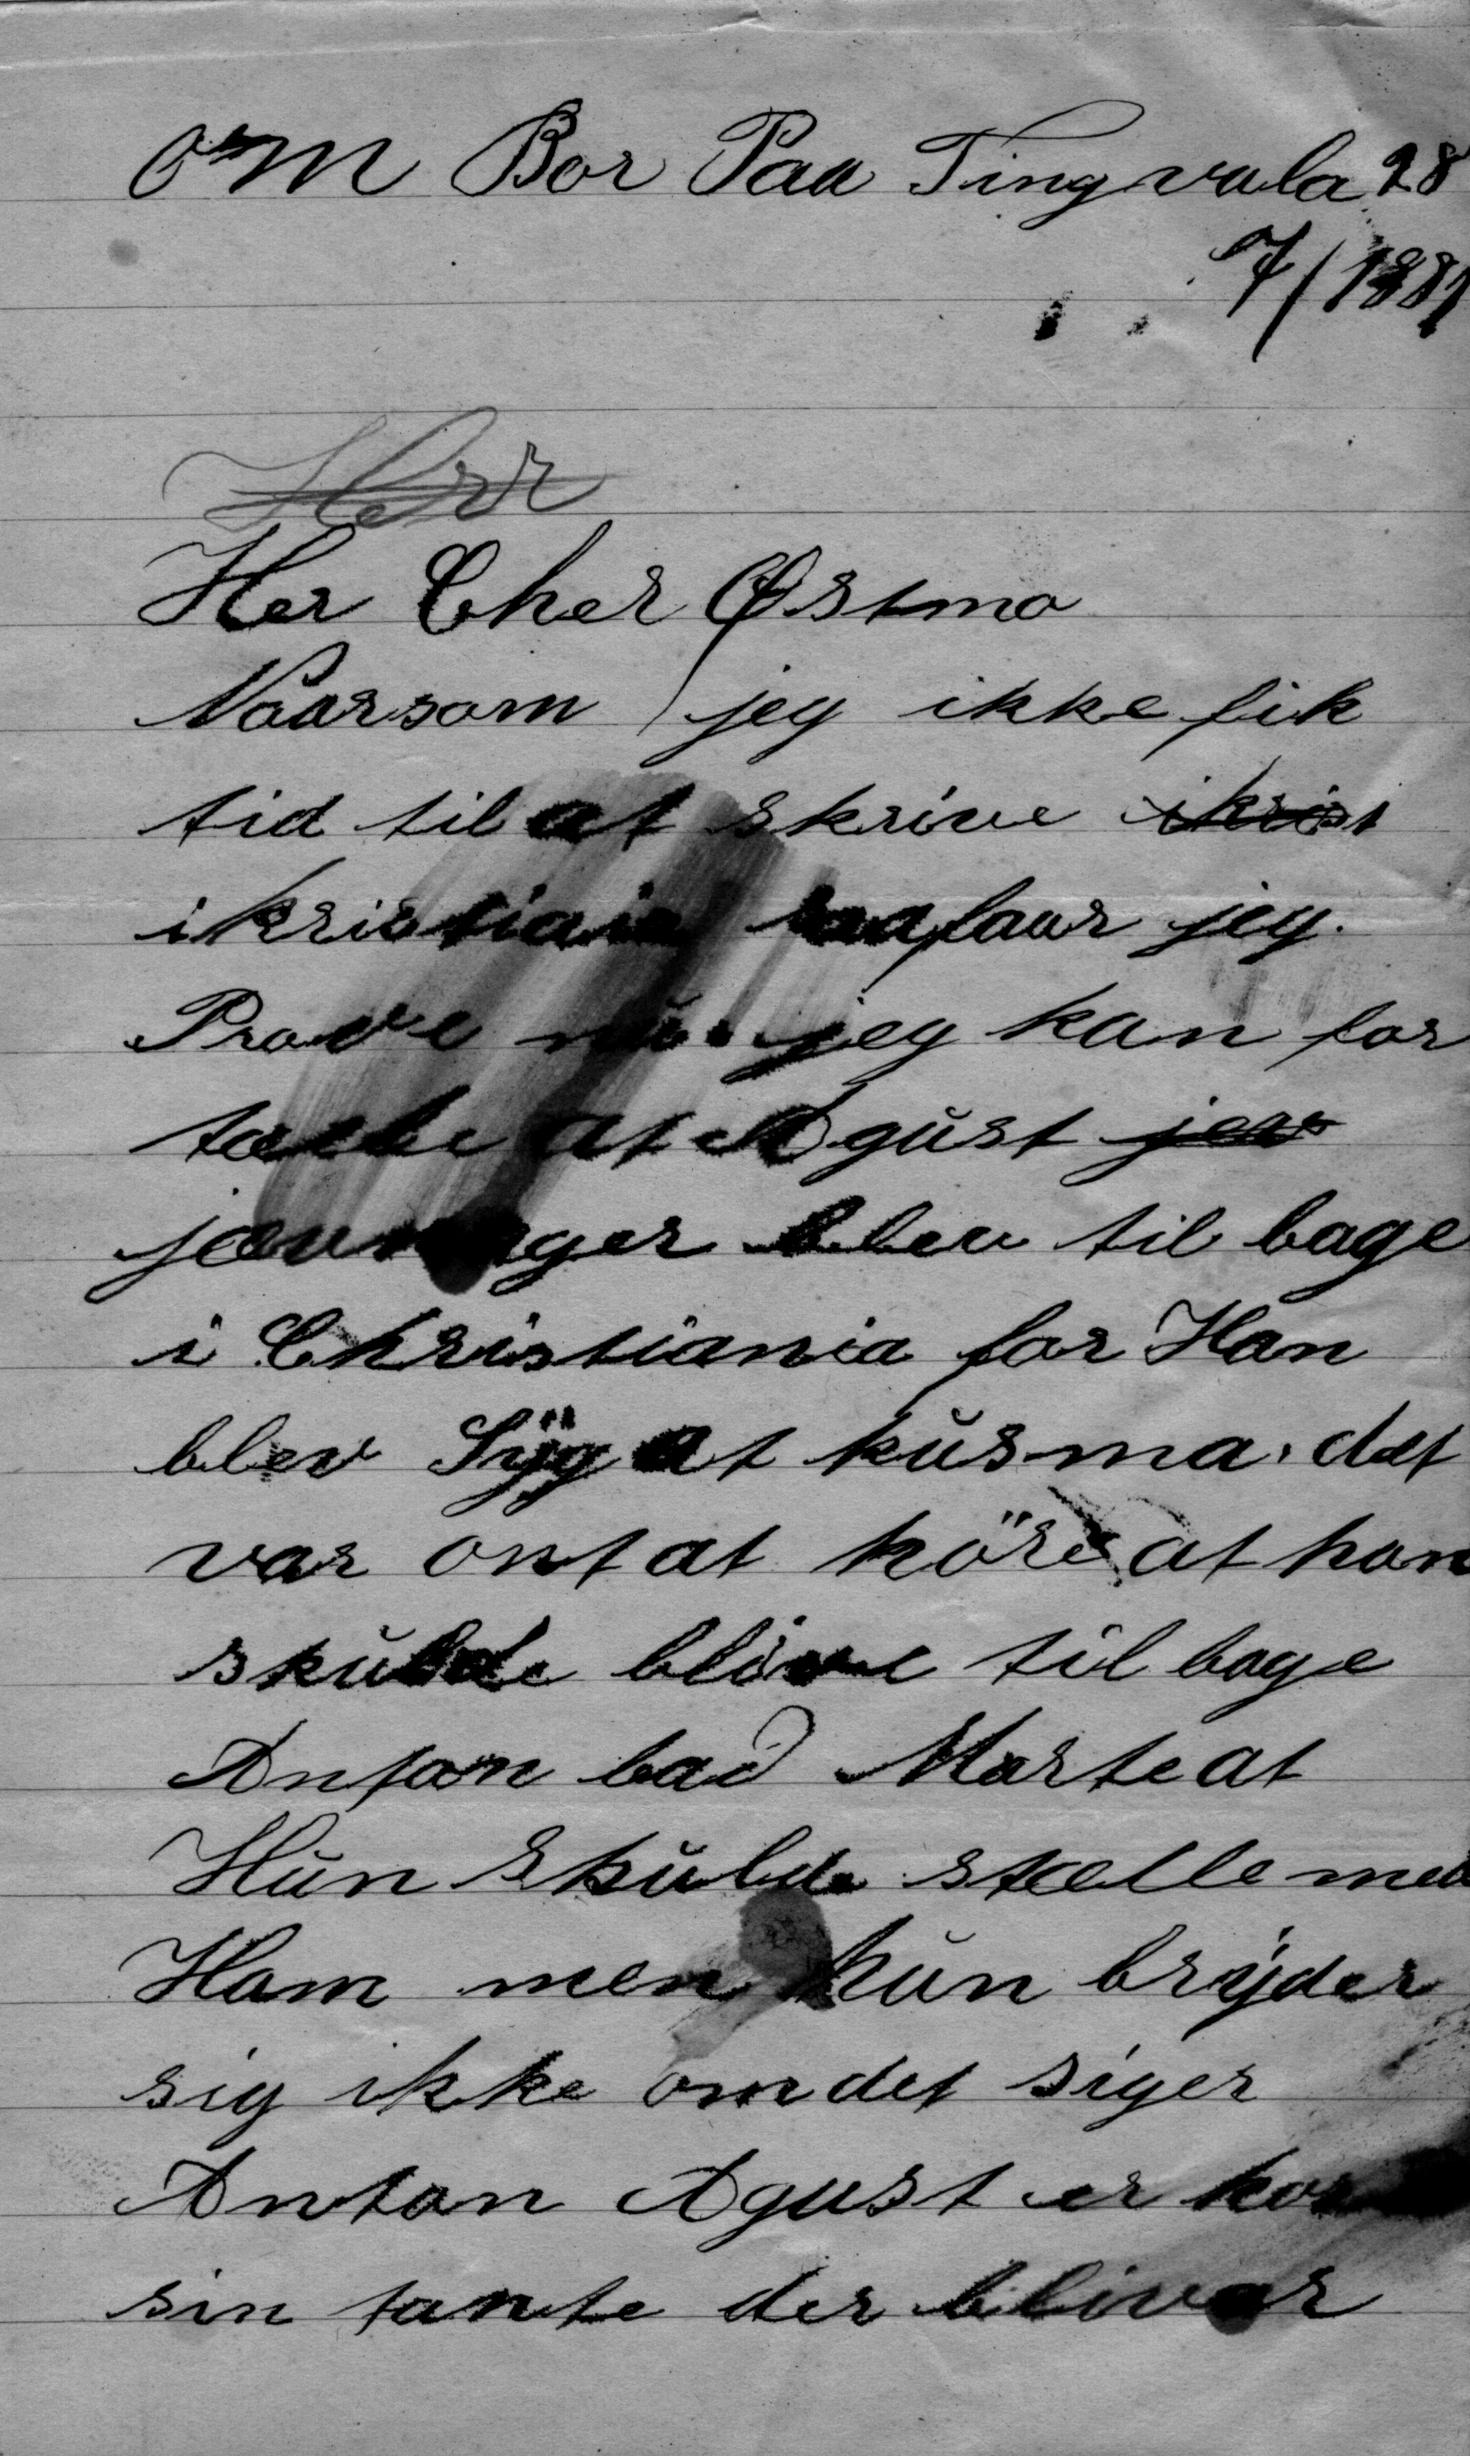 Om Bor Paa Tingvala 28
7/1881
Herr
Her Cher Østmo
Naarsom jeg ikke fik
tid til at skrive ikrist
i kristiania saa faar jeg.
Prove nu jeg kan for
tælle at Agust jev
jævnager blev til bage
i Christiania for Han
blev Syg at kusma. det
var ont at höre at han
skulde blive til bage
Anton bad Marte at
Hun skulde stælle med
Ham men hun bryder
sig ikke om det siger
Anton Agust er hos
sin tante der bliver